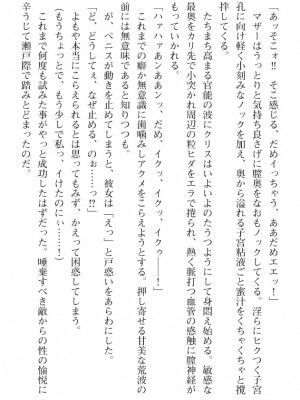 「あっそこォ!! そこ感じる、だめイっちゃう、ああだめエエッ！」
マザーはうっとりと気持ち良さげに膣奥をなおもノックしてくる。淫らにヒクつく子宮
孔に向け軽く小刻みなノックを加え、奥から溢れる子宮粘液ごと蜜汁をくちゃくちゃと攪
拌してくる。
たちまち高まる官能の波にクリスはいよいよのたうつようにして身悶え始める。敏感な
最奥をカリ先で小突かれ周辺の粒ヒダをエラで捲られ、熱く脈打つ血管の感触に膣神経が
もっていかれる。
「ハァハァあンあンッ、だめ、イクッ、イクッ、イクゥー！」
これまでの癖か無意識に歯噛みしアクメをこらえようとする。押し寄せる甘美な荒波の
前には無意味であると知りつつも。
が、ペニスが動きを止めてしまうと、彼女は「えっ」と戸惑いをあらわにした。
「ど、どうしてぇ、なぜ止める、のぉ……っ？」
よもや本当にこらえきれるとは思ってもみず、かえって困惑してしまう。
（もうちょっとで、もう少しで私っ、イけたのにぃ………！）
これまで何度も試みた事がやっと成功したはずだった。唾棄すべき敵からの性の愉悦に
辛うじて瀬戸際で踏みとどまったのだ。